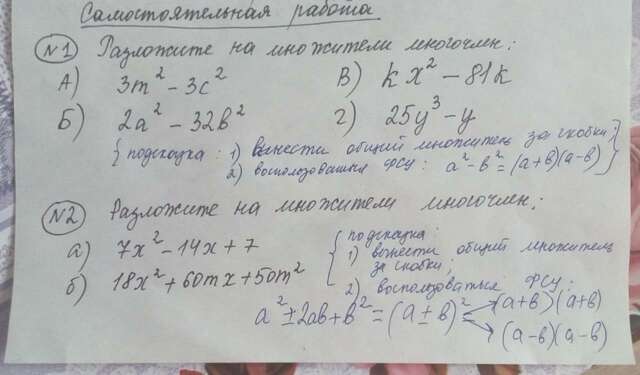 Самостоятельная работа
№1 Разложите на множители многочлен:
А) 3m² - 3c²
В) kx² - 81k
Б) 2a² - 32b²
Г) 25y³ - y
{подсказка: 1) вынести общий множитель за скобки;
2) воспользоваться ФСУ: a² - b² = (a+b)(a-b)}
№2 Разложите на множители многочлен:
а) 7x² - 14x + 7
б) 18x² + 60mx + 50m²
{подсказка:
1) вынести общий множитель
за скобки;
2) воспользоваться ФСУ:
a² ± 2ab + b² = (a ± b)² → (a+b)(a+b)
→ (a-b)(a-b)